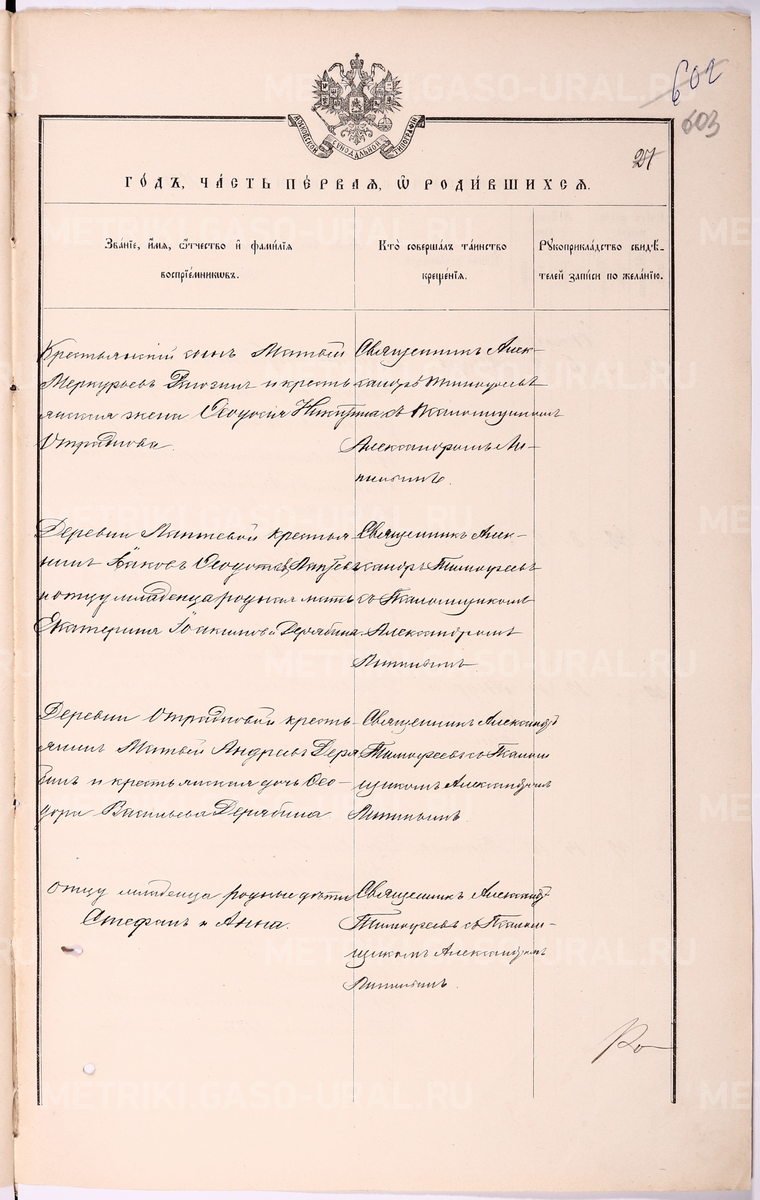 602
603
27
МОСКОВСКОЙ СѴНОДАЛЬНОЙ ТИПОГРАФІИ
ГО́ДЪ, ЧА́СТЬ ПЕ́РВАЯ, Ѿ РОДИ́ВШИХСЯ.
Зва́нїе, и҆́мя, ѻ҆́тчество и҆ фами́лїя
воспрїе́мниковъ.
Кто̀ соверша́лъ та́инство
креще́нїя.
Рꙋкоприкла́дство свидѣ́-
телей за́писи по жела́нїю.
Крестьянскій сынъ Матѳей
Меркурьевъ и кресть
янская жена Ѳеодосія
Отраднова.
Священникъ Алек-
сандръ Тимофеевъ
съ Псаломщикомъ
Александромъ Ли-
Деревни крестья
нинъ Іаковъ Ѳеодотовъ
и отцу младенца родная мать
Екатерина Іоакимова Дерябина.
Священникъ Алек-
сандръ Тимофеевъ
съ Псаломщикомъ
Александромъ
Деревни Отрадновой кресть-
янинъ Матѳей Андреевъ Деря
бинъ и крестьянская дочь Ѳео-
дора Васильева Дерябина
Священникъ Александръ
Тимофеевъ съ Псалом
щикомъ Александромъ
отцу младенца родные дѣти
Стефанъ и Анна.
Священникъ Александръ
Тимофеевъ съ Псалом-
щикомъ Александромъ
METRIKI.GASO-URAL.RU